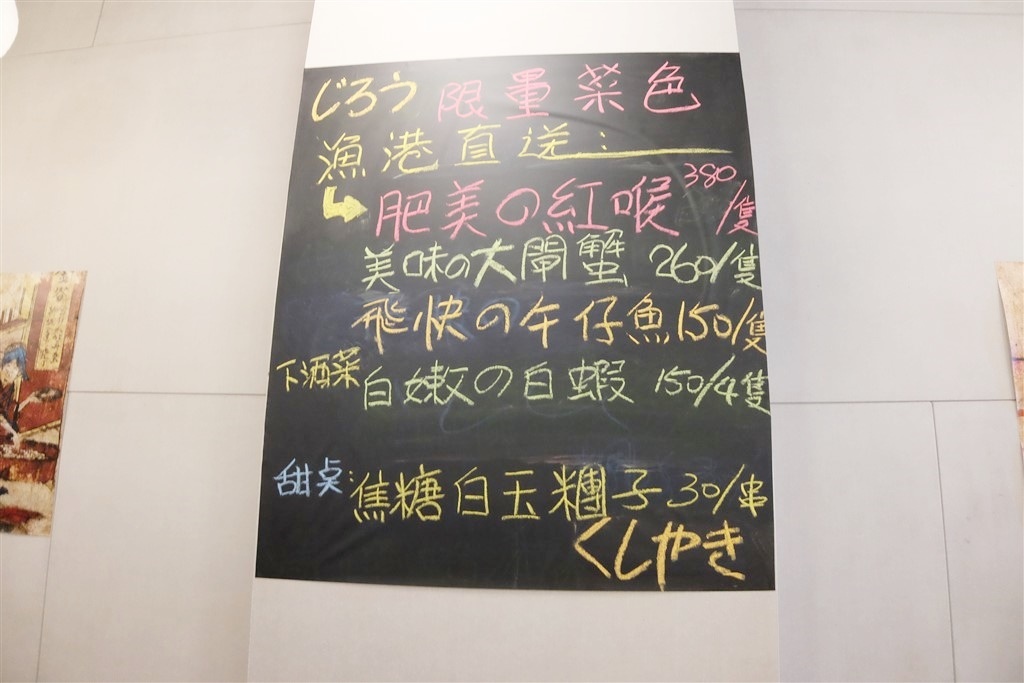 じろう 限量菜色
漁港直送：
肥美の紅喉 380/隻
美味の大閘蟹 260/隻
飛快の午仔魚 150/隻
下酒菜 白嫩の白蝦 150/4隻
甜点：焦糖白玉糰子 30/串
くしやき